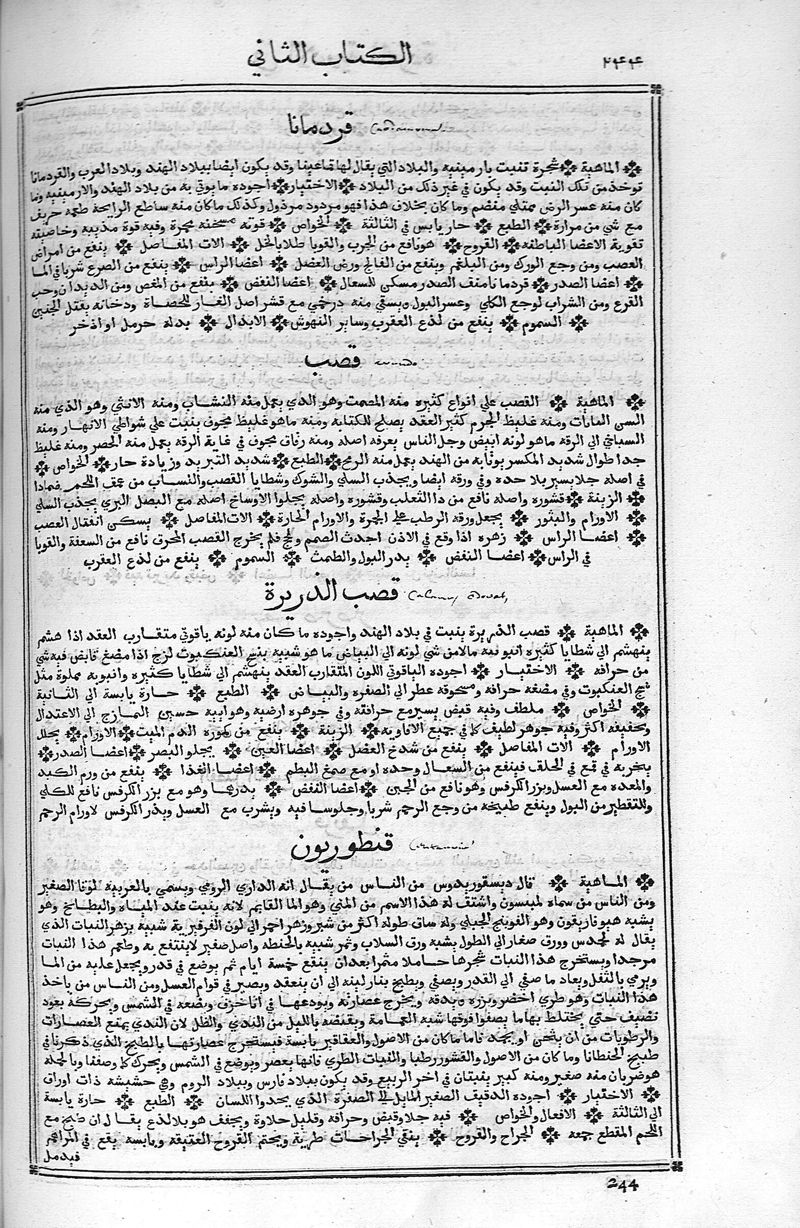 ٢٤٤
الكتاب الثاني
قردمانا
الماهية شجرة تنبت بارمينيه والبلاد التي يقال لها وقد يكون ايضا ببلاد الهند وبلاد العرب والقردمانا
توخذ من تلك النبت وقد يكون في غير ذلك من البلاد الاختيار اجوده ما يوتي به من بلاد الهند والارمينيه وما
كان منه عسر الرض ممتلي منضم وما كان بخلاف هذا فهو مردود مرذول وكذلك ما كان منه ساطع الرايحة طعمه حريف
مع شي من مرارة الطبع حار يابس في الثالثة الخواص قوته مسخنه محمرة وفيه قوة مذيبه وخاصيته
تقوية الاعضا الباطنه القروح هو نافع من الجرب والقوبا طلا بالخل الات المفاصل ينفع من امراض
العصب ومن وجع الورك ومن البلغم وينفع من الفالج ورض العضل اعضا الراس ينفع من الصرع شربا في الما
اعضا الصدر قردمانا منقف الصدر مسكن للسعال اعضا النفض ينفع من المغص ومن الديدان وحب
القرع ومن الشراب لوجع الكلي وعسر البول يسقي منه درخمي مع قشر اصل الغار للحصاة ودخانه يقتل الجنين
السموم ينفع من لذع العقرب وساير النهوش الابدال بدله حرمل او اذخر
قصب
الماهية القصب علي انواع كثيره منه المصمت وهو الذي يعمل منه النشاب ومنه الانثي وهو الذي منه
السن النايات ومنه غليظ الجرم كثير العقد يصلح للكتابه ومنه ما هو غليظ مجوف ينبت علي شواطي الانهار ومنه
السباخي الي الرقه ما هو لونه ابيض وجل الناس يعرفه اصله ومنه رقاق مجوف في غاية الرقه يعمل منه الحصر ومنه غليظ
جدا طوال شديد المكسر يوتا به من الهند يعمل منه الرمح الطبع شديد التبريد وزيادة حار الخواص
في اصله جلا يسير بلا حده وفي ورقه ايضا ويجذب السلي والشوك وشطايا القصب والنشاب من عمق اللحم ضمادا
الزينة قشوره واصله نافع من دا الثعلب وقشوره واصله يجلوا الاوساخ اصله مع البصل البري يجذب السلي
الاورام والبثور يجعل ورقه الرطب علي الحمرة والاورام الحارة الات المفاصل يسكن انفتال العصب
اعضا الراس زهره اذا وقع في الاذن احدث الصمم ولحج فلم يخرج القصب المحرق نافع من السعفة والقوبا
في الراس اعضا النفض يدر البول والطمث السموم ينفع من لذع العقرب
قصب الذريرة
الماهية قصب الذريرة ينبت في بلاد الهند واجوده ما كان منه لونه ياقوتي متقارب العقد اذا هشم
ينهشم الي شطايا كثيره انبوبه مالا من شي لونه الي البياض ما هو شبيه بنسج العنكبوت لزج اذا مضغ قابض فيه شي
من حرافه الاختيار اجوده الياقوتي اللون المتقارب العقد ينهشم الي شطايا كثيره وانبوبه مملوة مثل
نسج العنكبوت وفي مضغه حرافه ومسحوقه عطر الي الصفره والبياض الطبع حارة يابسة الي الثانية
الخواص ملطف وفيه قبض يسير مع حرافته وفي جوهره ارضيه وهوايية حسين المازج الي الاعتدال
وتجفيفه اكثر وفيه جوهر لطيف كما في جميع الافاويه الزينة ينفع من كهوبه الدم الميت الاورام يحلل
الاورام الات المفاصل ينفع من شدخ العضل اعضا العين يجلو البصر اعضا الصدر
بخر به في قمع في الحلق فينفع من السعال وحده او مع صمغ البطم اعضا الغذا ينفع من ورم الكبد
والمعده مع العسل وبزر الكرفس وهو نافع من الحبن اعضا النفض يدرها وهو مع بزر الكرفس نافع للكلي
وللتقطير من البول وينفع طبيخه من وجع الرحم شربا وجلوسا فيه ويشرب مع العسل وبذر الكرفس لاورام الرحم
قنطوريون
الماهية قال ديسقوريدوس من الناس من يقال انه الداري الرومي ويسمي بالغربية لوتا الصغير
ومن الناس من سماه لمنيسون واشتف له هذا الاسم من المني وهو الما القايم لانه ينبت عند المياه والبطايح وهو
يشبه هيوفاريقون وهو الفوينج الجبلي وله ساق طوله اكثر من شبر وزهر احمر الي لون الفرفير ية شبيهة بزهر النبات الذي
يقال له وورق صغار الي الطول يشبه ورق السداب وثمر شبيه بالحنطه واصل صغير لا ينتفع به وطعم هذا النبات
مر جدا ويستخرج هذا النبات شجرها حاملا مثمرا بعد ان ينقع خمسة ايام ثم يوضع في قدر ويجعل عليه من الما
ويرمي بالثفل ويعاد ما صفي الي القدر ويصفي ويطبخ بنار لينه الي ان ينعقد ويصير في قوام العسل ومن الناس من ياخذ
هذا النبات وهو طري اخضر وبزره يدقه ويخرج عصارته ويودعها في انا خزف ويضعه في الشمس ويحركه بعود
نضيف حتي يختلط بها ما يصفوا فوقها شبه الغمامة ويغطيه بالليل من الندي والظل لان الندي يمنع العصارات
والرطوبات من ان يثخن او يجمد تاما ما كان من الاصول والعقاقير يابسة فيستخرج عصارتها بالطبخ الذي ذكرنا في
طبيخ الجنطانا وما كان من الاصول والقشور رطبا والنبات الطري فانها يعصر ويوضع في الشمس ويحرك كما وصفنا وبالجمله
هو ضربان منه صغير ومنه كبير ينبتان في اخر الربيع وقد يكون ببلاد فارس وببلاد الروم وهي حشيشه ذات اوراق
الاختيار اجوده الدقيق الصغير المايل الي الصفرة الذي يحدوا اللسان الطبع حارة يابسة
الي الثالثة الافعال والخواص فيه جلا وقبض وحرافه وقليل حلاوة ويجفف هو بلا لذع يقال ان طبخ مع
اللحم المقطع جمعه الجراح والقروح ينقي الجراحات طرية ويختم القروح العتيقه ويابسه يقع في المراهم
فيدمل
244